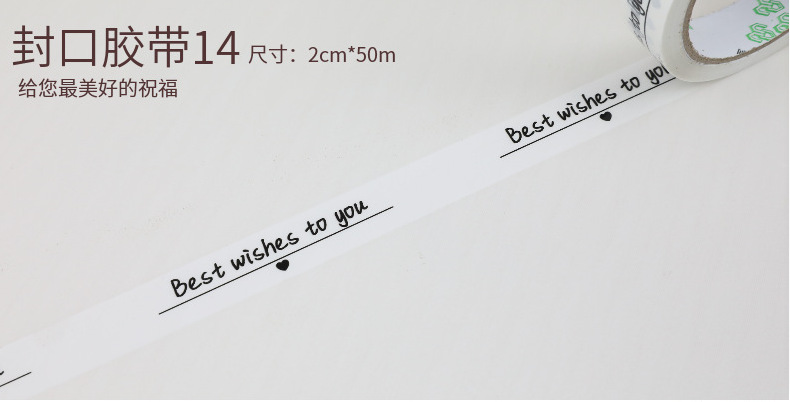 封口胶带14 尺寸：2cm*50m
给您最美好的祝福
Best wishes to you
Best wishes to you